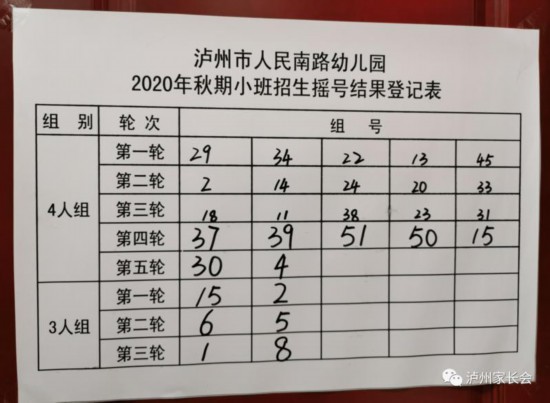 泸州市人民南路幼儿园
2020年秋期小班招生摇号结果登记表
组 别 轮 次 组 号
4人组
第一轮 29 34 22 13 45
第二轮 2 14 24 20 33
第三轮 18 11 38 23 31
第四轮 37 39 51 50 15
第五轮 30 4
3人组
第一轮 15 2
第二轮 6 5
第三轮 1 8
泸州家长会